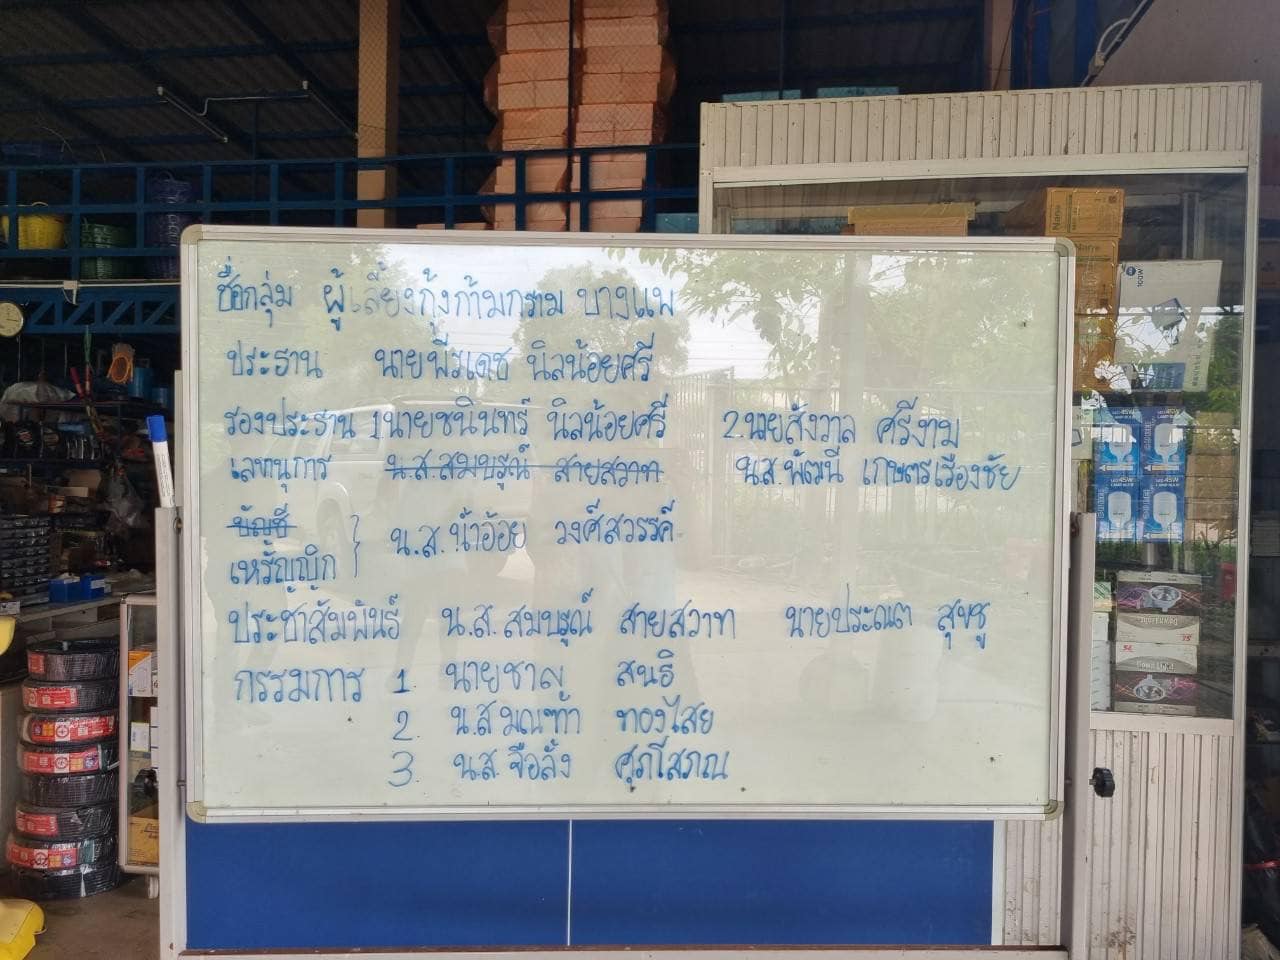 ชื่อกลุ่ม ผู้เลี้ยงกุ้งก้ามกราม บางแพ
ประธาน นายพีรเดช นิลน้อยศรี
รองประธาน 1 นายชนินทร์ นิลน้อยศรี 2. นายสังวาล ศรีงาม
เลขานุการ น.ส.สมบรูณ์ สายสวาท น.ส.พัฒนี เกษตรเรืองชัย
บัญชี
เหรัญญิก } น.ส. น้ำอ้อย วงศ์สวรรค์
ประชาสัมพันธ์ น.ส.สมบรูณ์ สายสวาท นายประณต สุขชู
กรรมการ 1. นายชาญ สนธิ
2. น.ส.มณฑา ทองไสย
3. น.ส.จือลั้ง ศุภโสภณ
Nano
100W
45W
45W